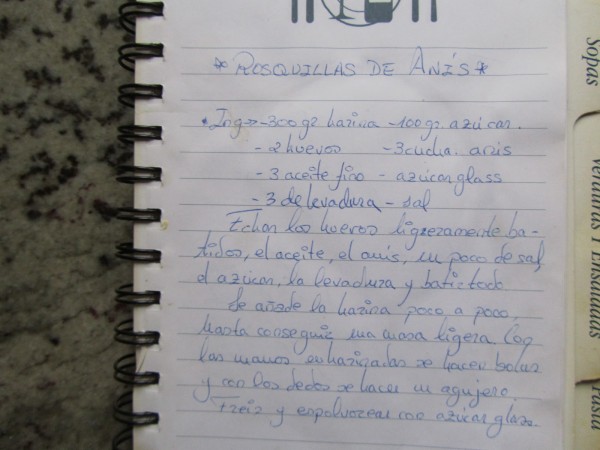 * ROSQUILLAS DE ANÍS *
• Ing -> -300gr. harina -100gr. azúcar.
- 2 huevos - 3 cucha. anis
- 3 aceite fino - azúcar glass
- 3 de levadura - sal
Echar los huevos ligeramente ba-
tidos, el aceite, el anís, un poco de sal,
el azúcar, la levadura y batir todo
Se añade la harina poco a poco,
hasta conseguir una masa ligera. Con
las manos enharinadas se hacen bolas
y con los dedos se hacer un agujero.
Freír y espolvorear con azúcar glass
Sopas
Verduras Y Ensaladas
Pasta